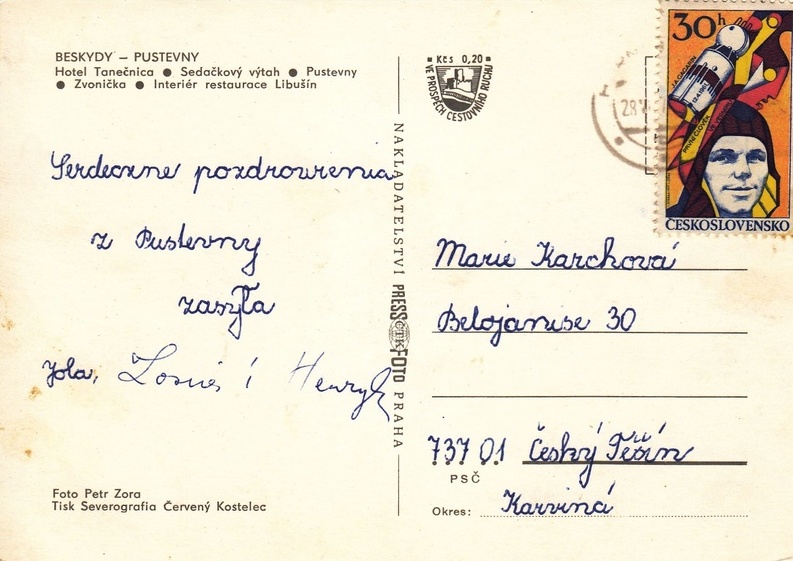 BESKYDY – PUSTEVNY
Hotel Tanečnica ● Sedačkový výtah ● Pustevny
● Zvonička ● Interiér restaurace Libušín
Serdeczne pozdrowienia
z Pustevny
zasyła
Jola, i Henryk
Foto Petr Zora
Tisk Severografia Červený Kostelec
NAKLADATELSTVÍ PRESSFOTO PRAHA
ČTK
Kčs 0,20
VE PROSPĚCH CESTOVNÍHO RUCHU
30h
J.A.GAGARIN
PRVNÍ ČLOVĚK VE VESMÍRU
ČESKOSLOVENSKO
Marie Karchová
Belojanise 30
737 01 Český Těšín
PSČ
Okres: Karviná